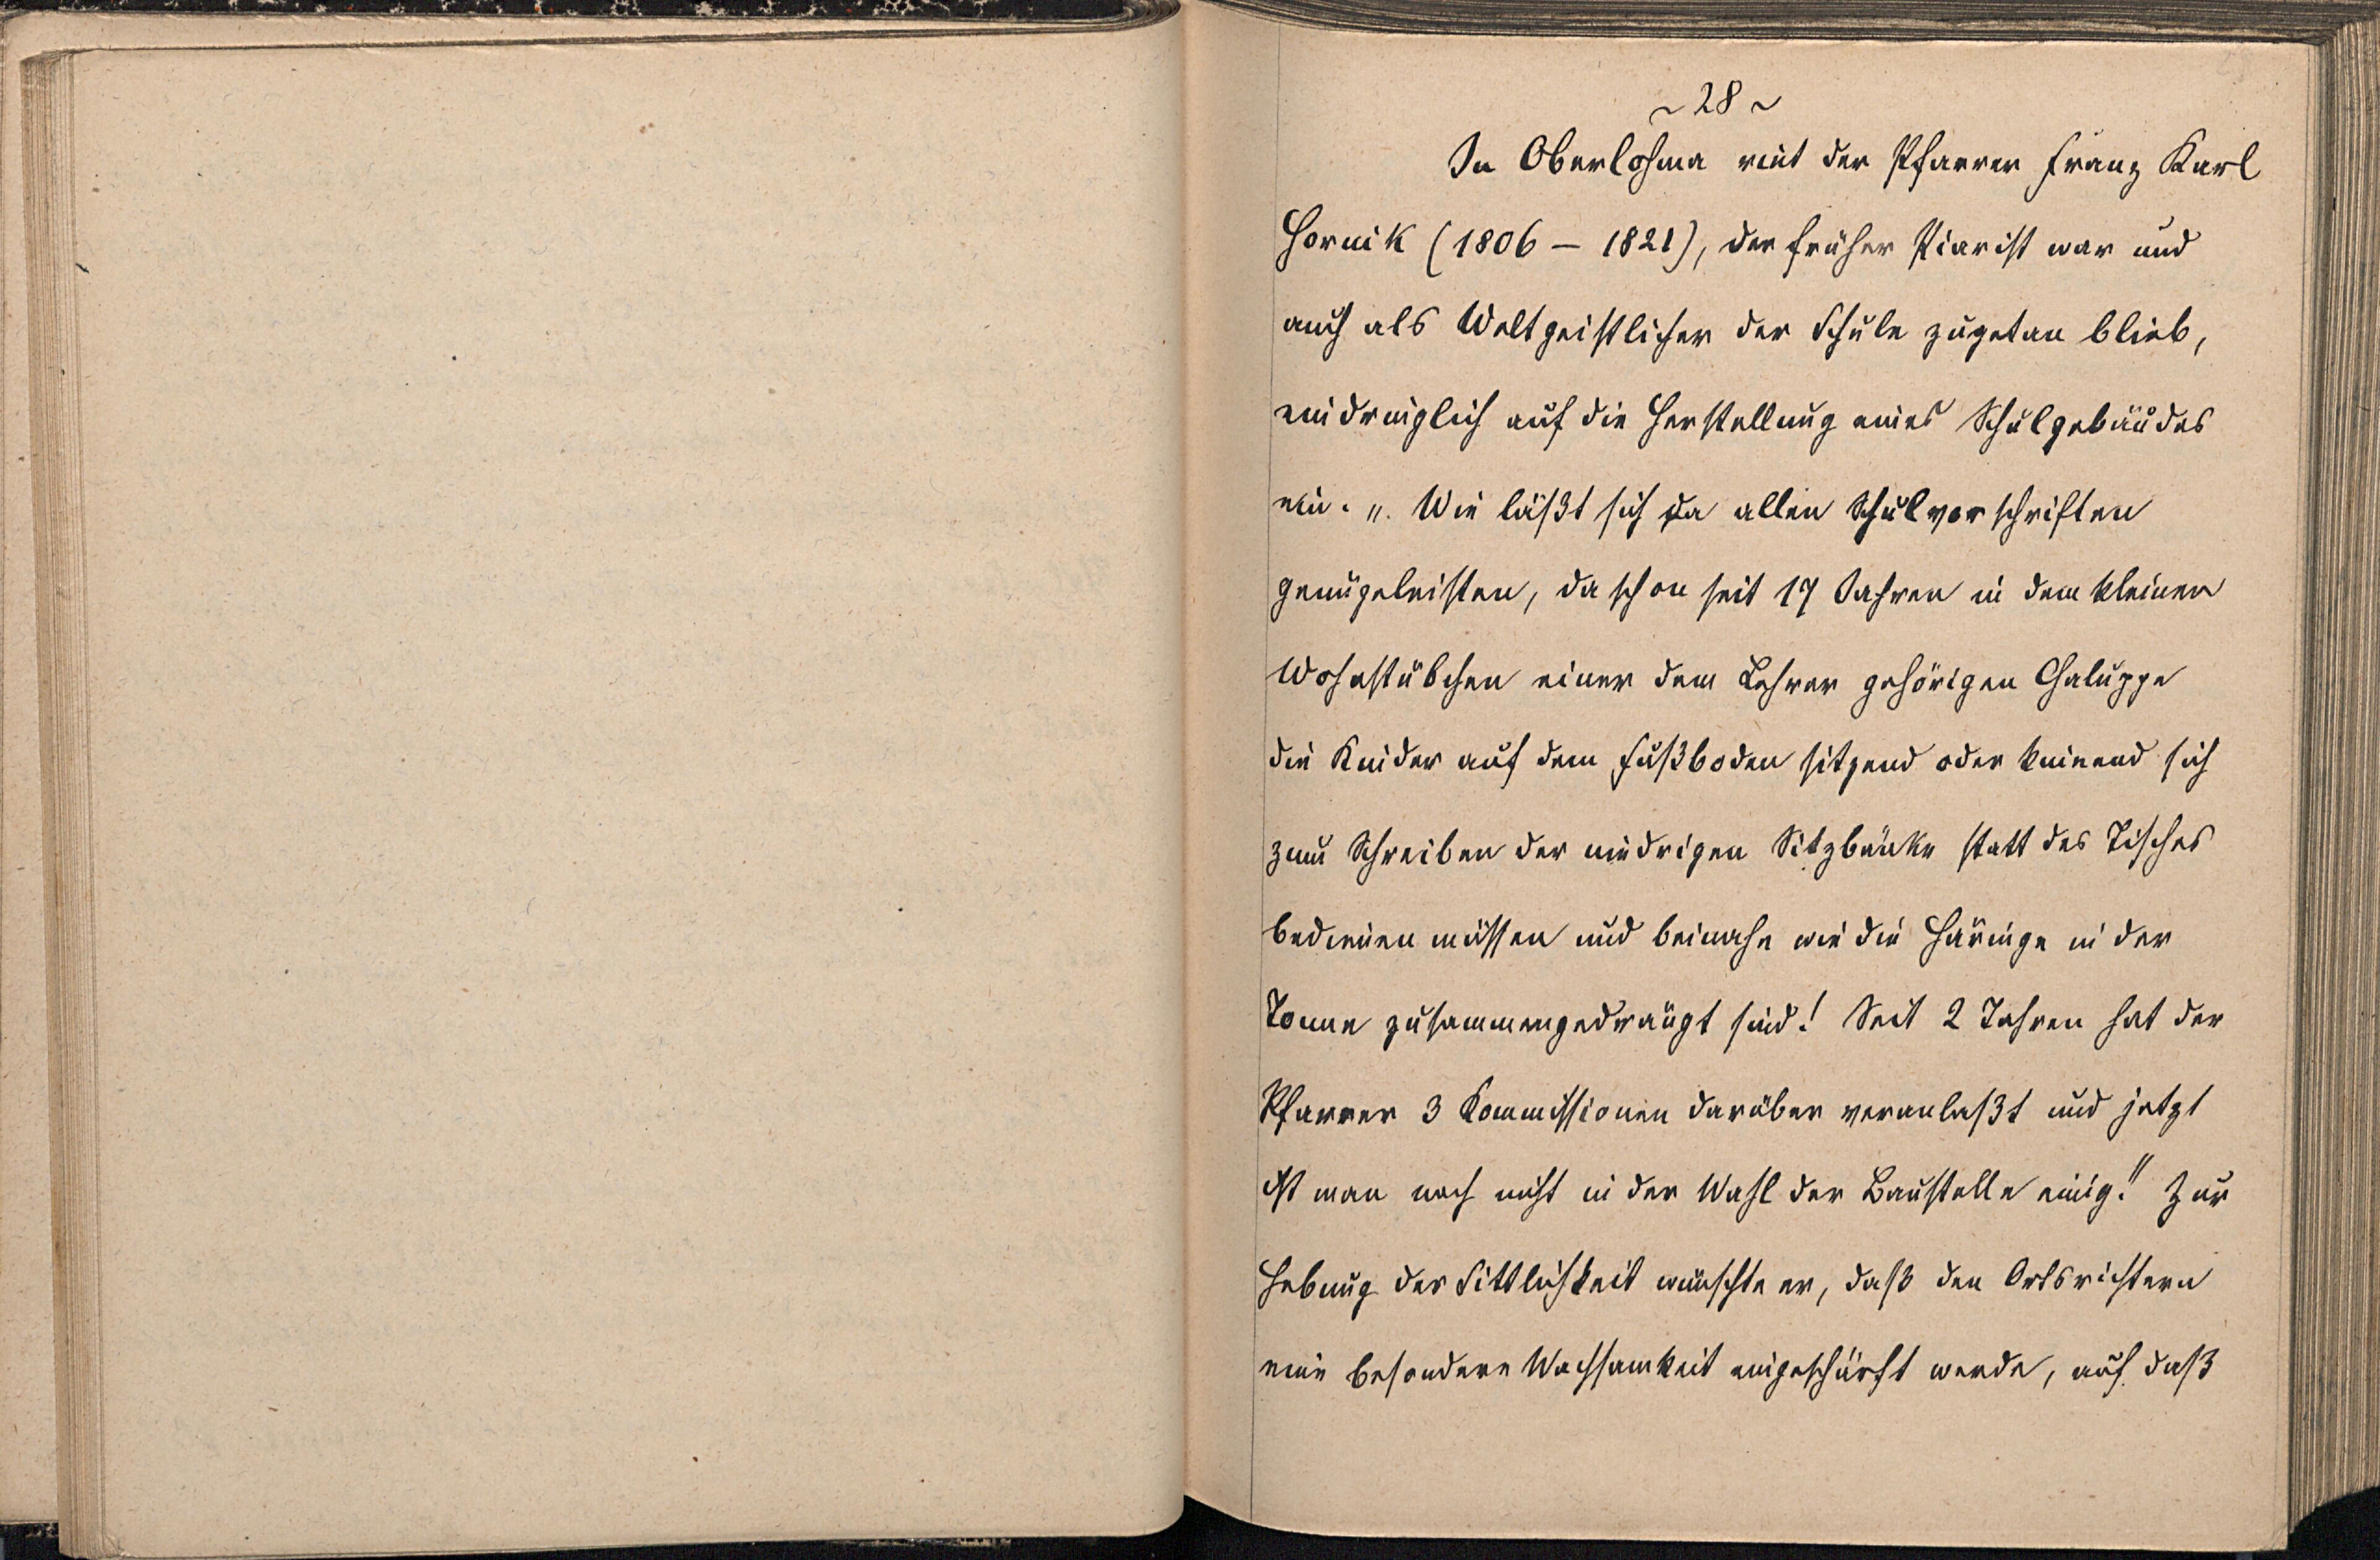 ~ 28 ~
In Oberlohma riet der Pfarrer Franz Karl
Hornik (1806 – 1821), der früher Piarist war und
auch als Weltgeistlicher der Schule zugetan blieb,
eindringlich auf die Herstellung eines Schulgebäudes
ein. „Wie läßt sich da allen Schulvorschriften
genügeleisten, da schon seit 17 Jahren in dem kleinen
Wohnstübchen einer dem Lehrer gehörigen Chaluppe
die Kinder auf dem Fußboden sitzend oder knieend sich
zum Schreiben der niedrigen Sitzbänke statt des Tisches
bedienen müssen und beinahe wie die Häringe in der
Tonne zusammengedrängt sind! Seit 2 Jahren hat der
Pfarrer 3 Kommissionen darüber veranlaßt und jetzt
ist man noch nicht in der Wahl der Baustelle einig!" Zur
Hebung der Sittlichkeit wünschte er, daß den Ortsrichtern
eine besondere Wachsamkeit eingeschärft werde, auf daß